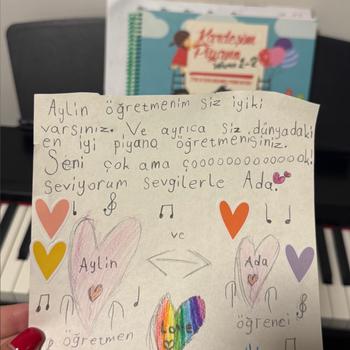 Kardeşim
Piyano
1-2
Aylin öğretmenim siz iyiki
varsınız. Ve ayrıca siz dünyadaki
en iyi piyano öğretmenisiniz.
Seni çok ama çooooooooooooook!
Seviyorum sevgilerle Ada.
ve
Aylin
Ada
Love
öğretmen
öğrenci